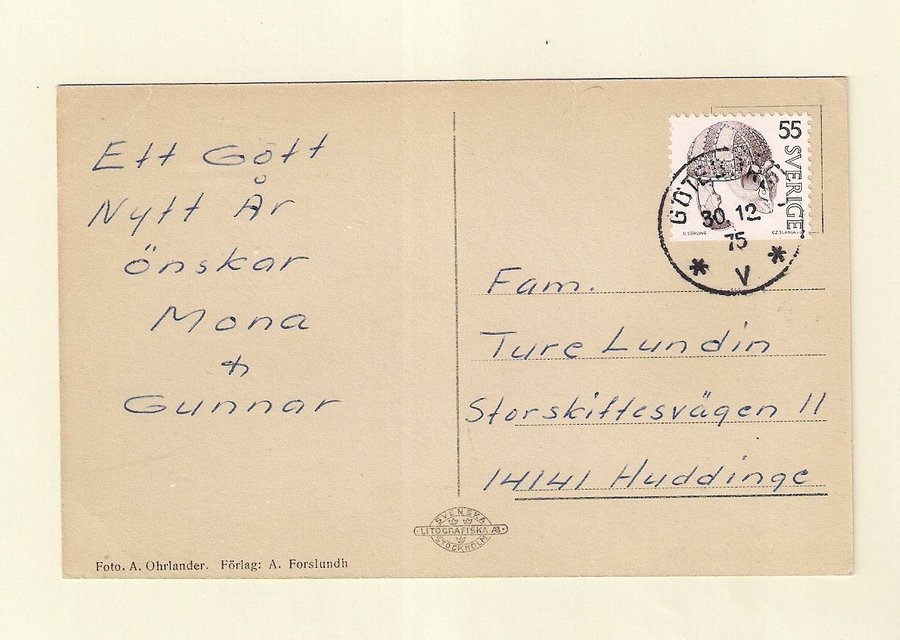 Ett Gött
Nytt År
önskar
Mona
&
Gunnar
55
SVERIGE
GÖTEBORG
30.12
75
* V *
Fam.
Ture Lundin
Storskiftesvägen 11
14141 Huddinge
SVENSKA
LITOGRAFISKA AB
STOCKHOLM
Foto. A. Ohrlander. Förlag: A. Forslundh